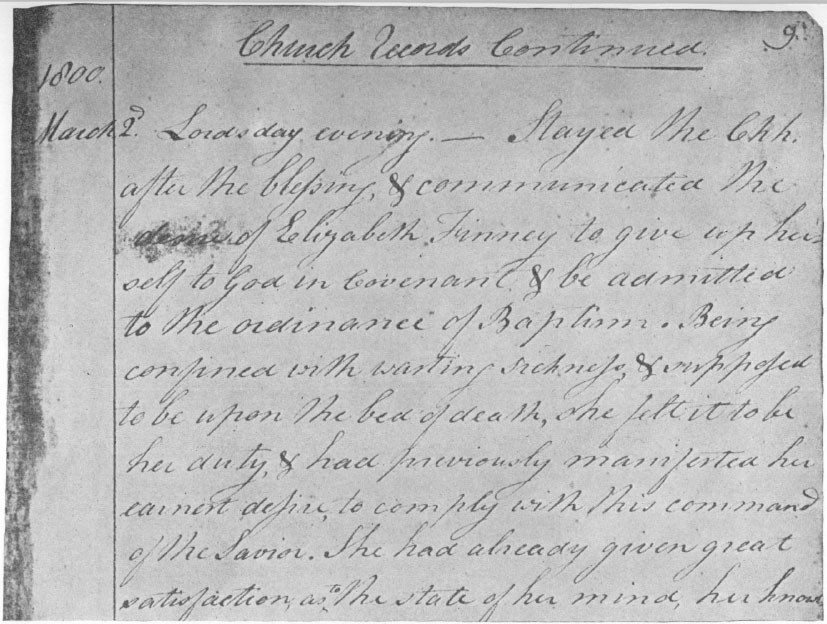 Church Records Continued. 9.
1800.
March 2d. Lordsday evening. — Stayed the Chh.
after the blessing, & communicated the
desire of Elizabeth Finney to give up her=
self to God in Covenant & be admitted
to the ordinance of Baptism. Being
confined with wasting sickness, & supposed
to be upon the bed of death, she felt it to be
her duty, & had previously manifested her
earnest desire, to comply with this command
of the Savior. She had already given great
satisfaction, as to the state of her mind, her know